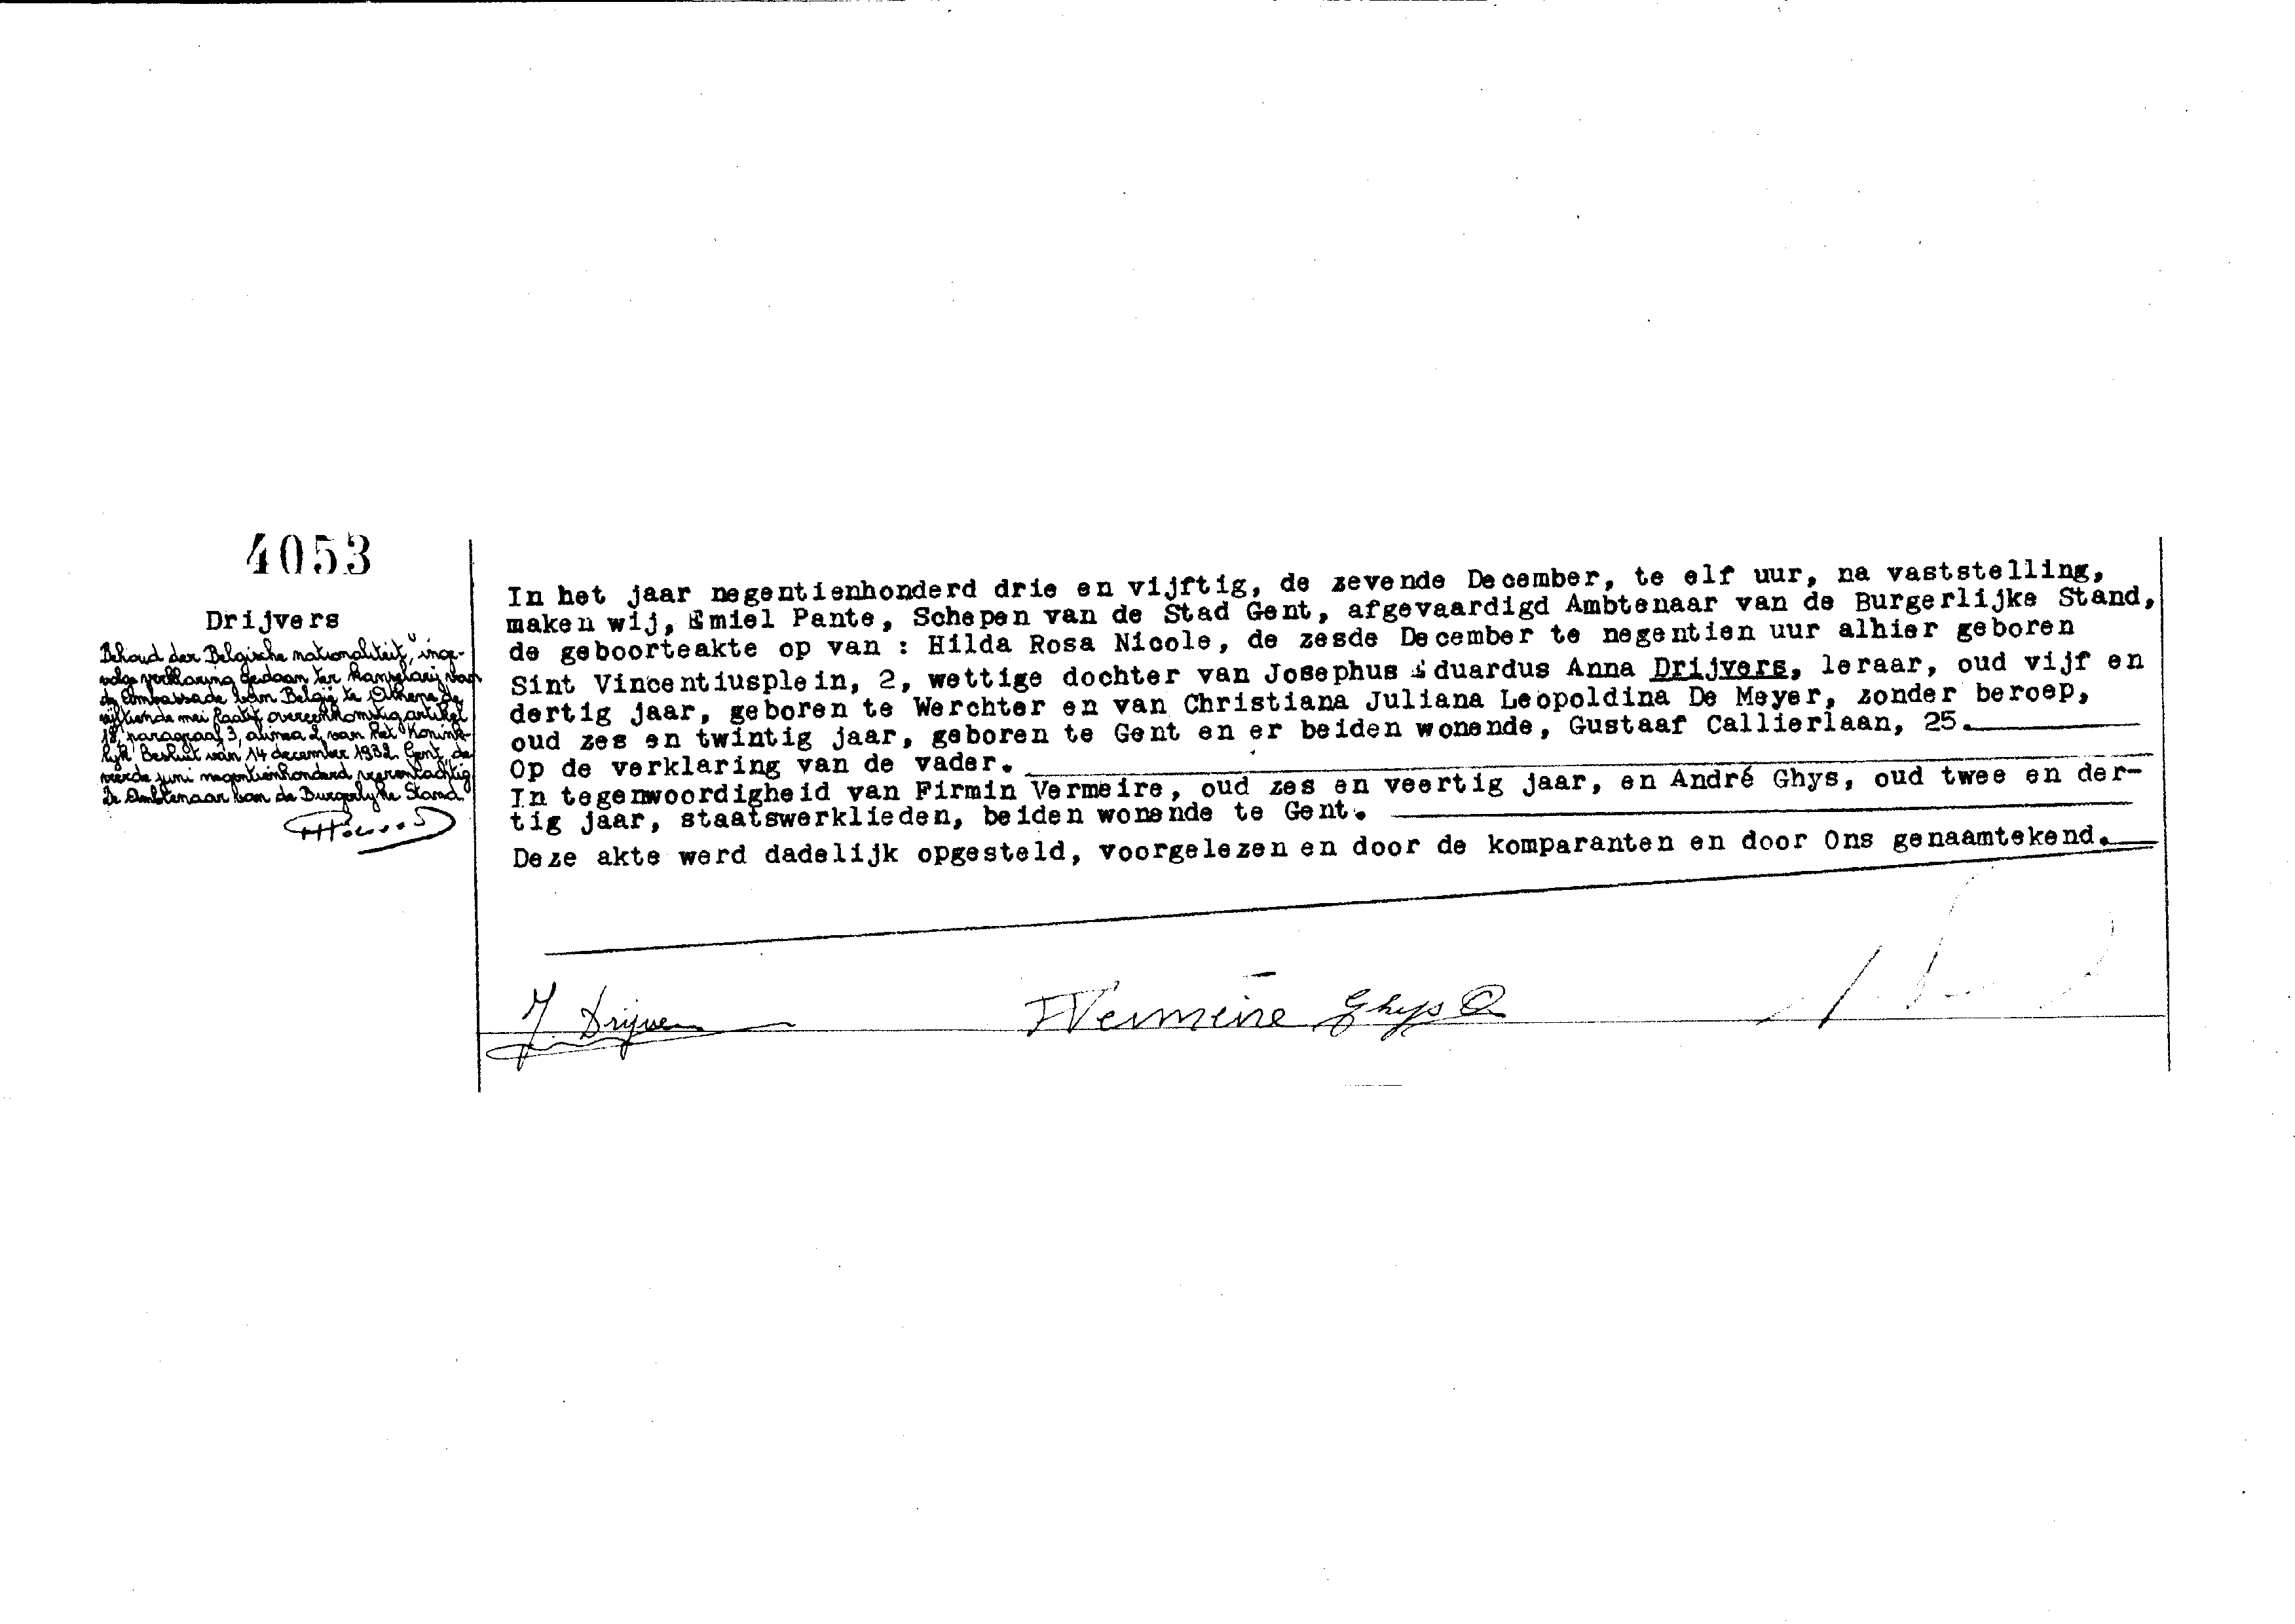 4053
Drijvers
Behoud der Belgische nationaliteit, inge-
volge verklaring gedaan ter kanselarij van
de Ambassade van België te Athene de
vijftiende mei laatst overeenkomstig artikel
18, paragraaf 3, alinea 2 van het Konink-
lijk Besluit van 14 december 1932. Gent, de
vierde juni negentienhonderd vierentachtig
De Ambtenaar van de Burgerlijke Stand
In het jaar negentienhonderd drie en vijftig, de zevende December, te elf uur, na vaststelling,
maken wij, Emiel Pante, Schepen van de Stad Gent, afgevaardigd Ambtenaar van de Burgerlijke Stand,
de geboorteakte op van : Hilda Rosa Nicole, de zesde December te negentien uur alhier geboren
Sint Vincentiusplein, 2, wettige dochter van Josephus Eduardus Anna Drijvers, leraar, oud vijf en
dertig jaar, geboren te Werchter en van Christiana Juliana Leopoldina De Meyer, zonder beroep,
oud zes en twintig jaar, geboren te Gent en er beiden wonende, Gustaaf Callierlaan, 25.
Op de verklaring van de vader.
In tegenwoordigheid van Firmin Vermeire, oud zes en veertig jaar, en André Ghys, oud twee en der-
tig jaar, staatswerklieden, beiden wonende te Gent.
Deze akte werd dadelijk opgesteld, voorgelezen en door de komparanten en door Ons genaamtekend.
J. Drijvers
F Vermeire Ghys A